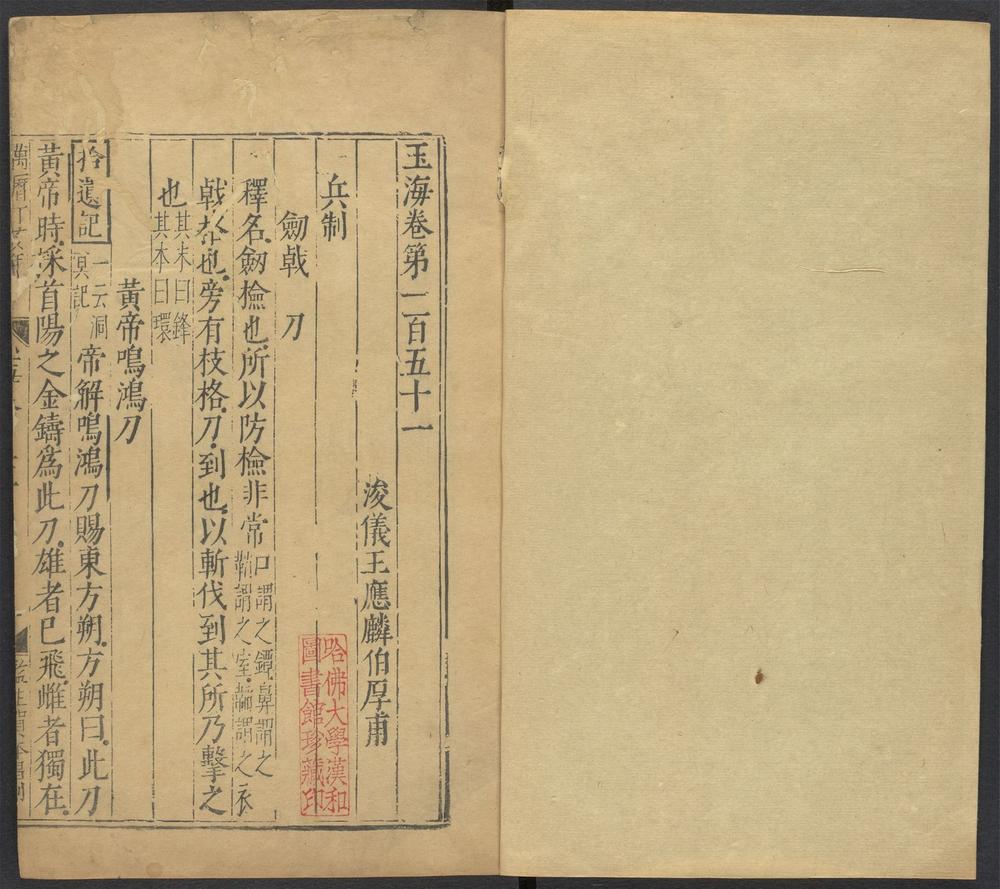 玉海卷第二百五十一
浚儀王應麟伯厚甫
兵制
劒戟　刀
釋名劒檢也所以防檢非常口謂之鐔鼻謂之
鞘謂之室
戟格也旁有枝格刀到也以斬伐到其所乃擊之
也其末曰鋒
其本曰環
黃帝鳴鴻刀
拾遺記一云洞
冥記帝解鳴鴻刀賜東方朔方朔曰此刀
黃帝時採首陽之金鑄爲此刀雄者已飛雌者獨在
萬曆
哈佛大學漢和
圖書館珍藏印